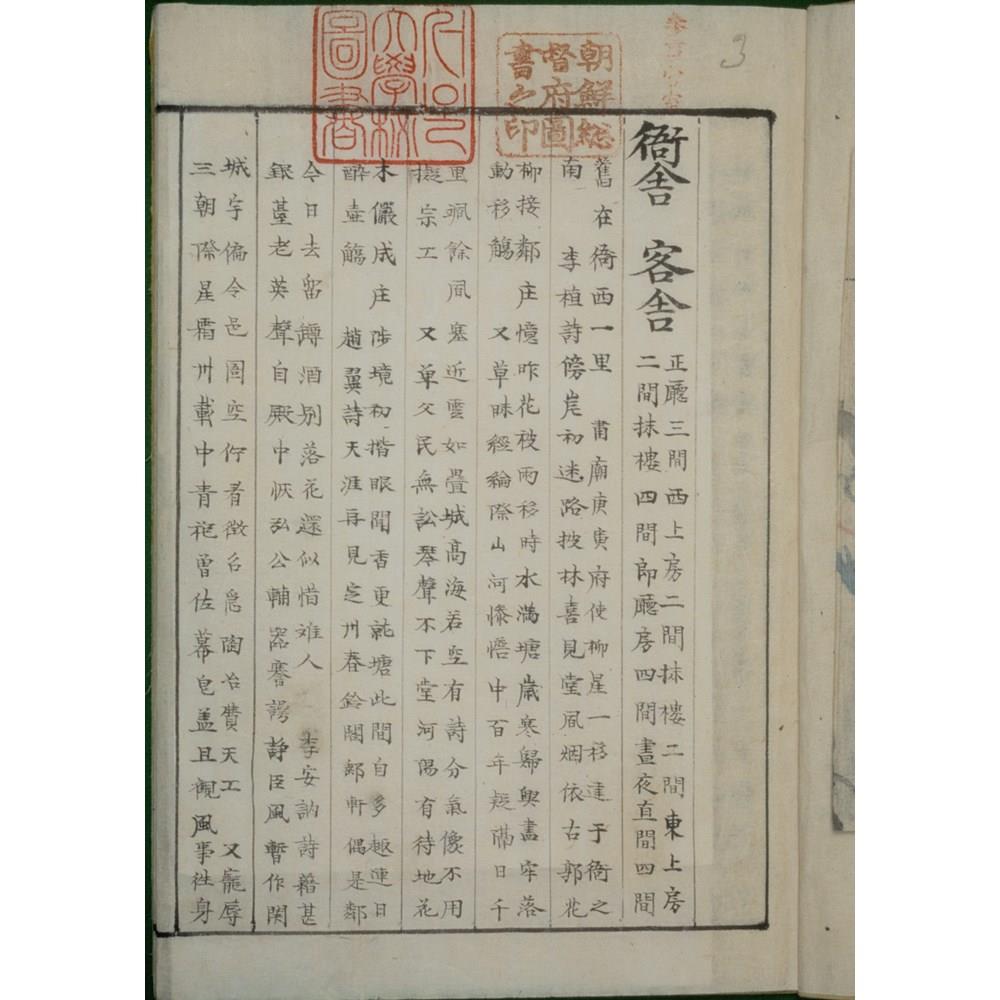 3
朝鮮総
督府圖
書之印
大學校
圖書
衙舍 客舍
正廳三間西上房二間抹樓二間東上房
二間抹樓四間郎廳房四間晝夜直間四間
舊在衙西一里 肅廟庚寅府使柳星一移建于衙之
南 李植詩傍岸初迷路披林喜見堂風烟依古郭花
柳接鄰庄憶昨花被雨移時水滿塘歲寒歸興盡牢落
動移觴 又草昧經綸際山河慘憺中百年疑隔日千
里颯餘風塞近雲如疊城高海若空有詩分氣像不用
擬宗工 又單父民無訟琴聲不下堂河陽有待地花
木儼成庄陟境初揩眼聞香更就塘此間自多趣連日
醉壺觴 趙翼詩天涯再見定州春鈴閣郵軒偶是鄰
今日去留罇酒別落花還似惜难人 李安訥詩籍甚
銀臺老英聲自殿中恢弘公輔器謇諤靜臣風暫作関
城守偏令邑圄空佇看徵召急陶冶賛天工 又寵辱
三朝際星霜卅載中青袍曾佐幕皂盖且觀風事徃身